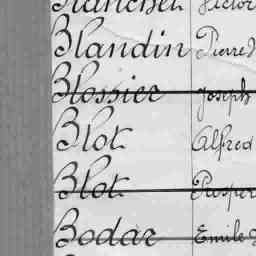 Blanchet Victor
Blandin Pierre
Blossier Joseph
Blot Alfred
Blot Prosper
Bodar Emile